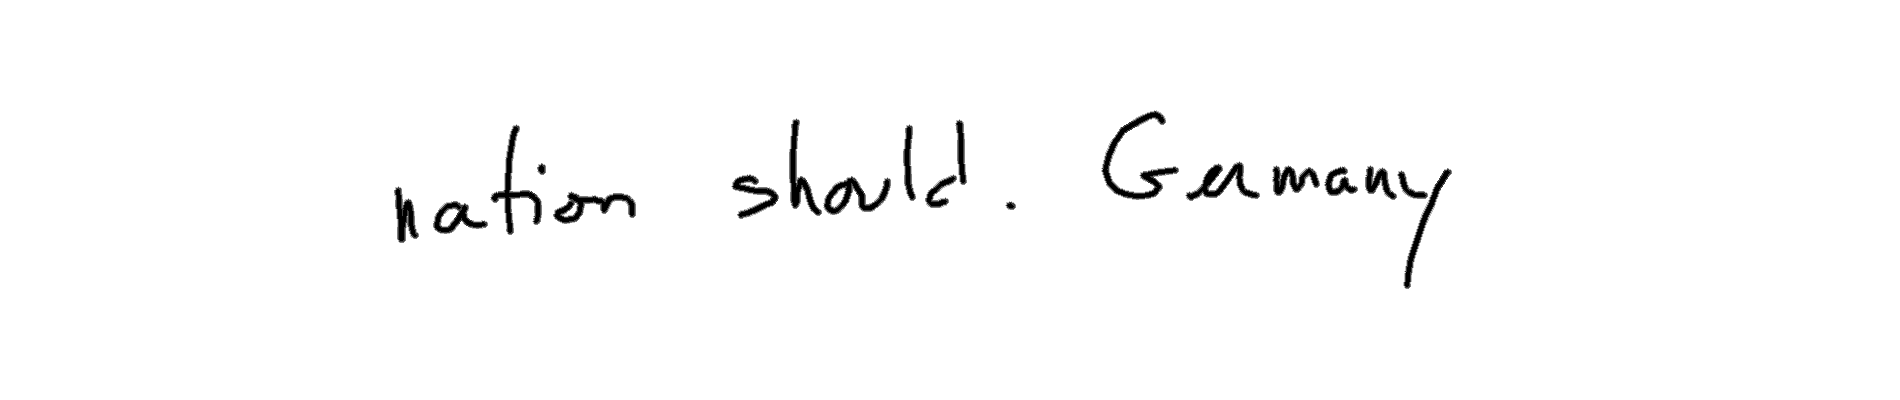 nation should. Germany